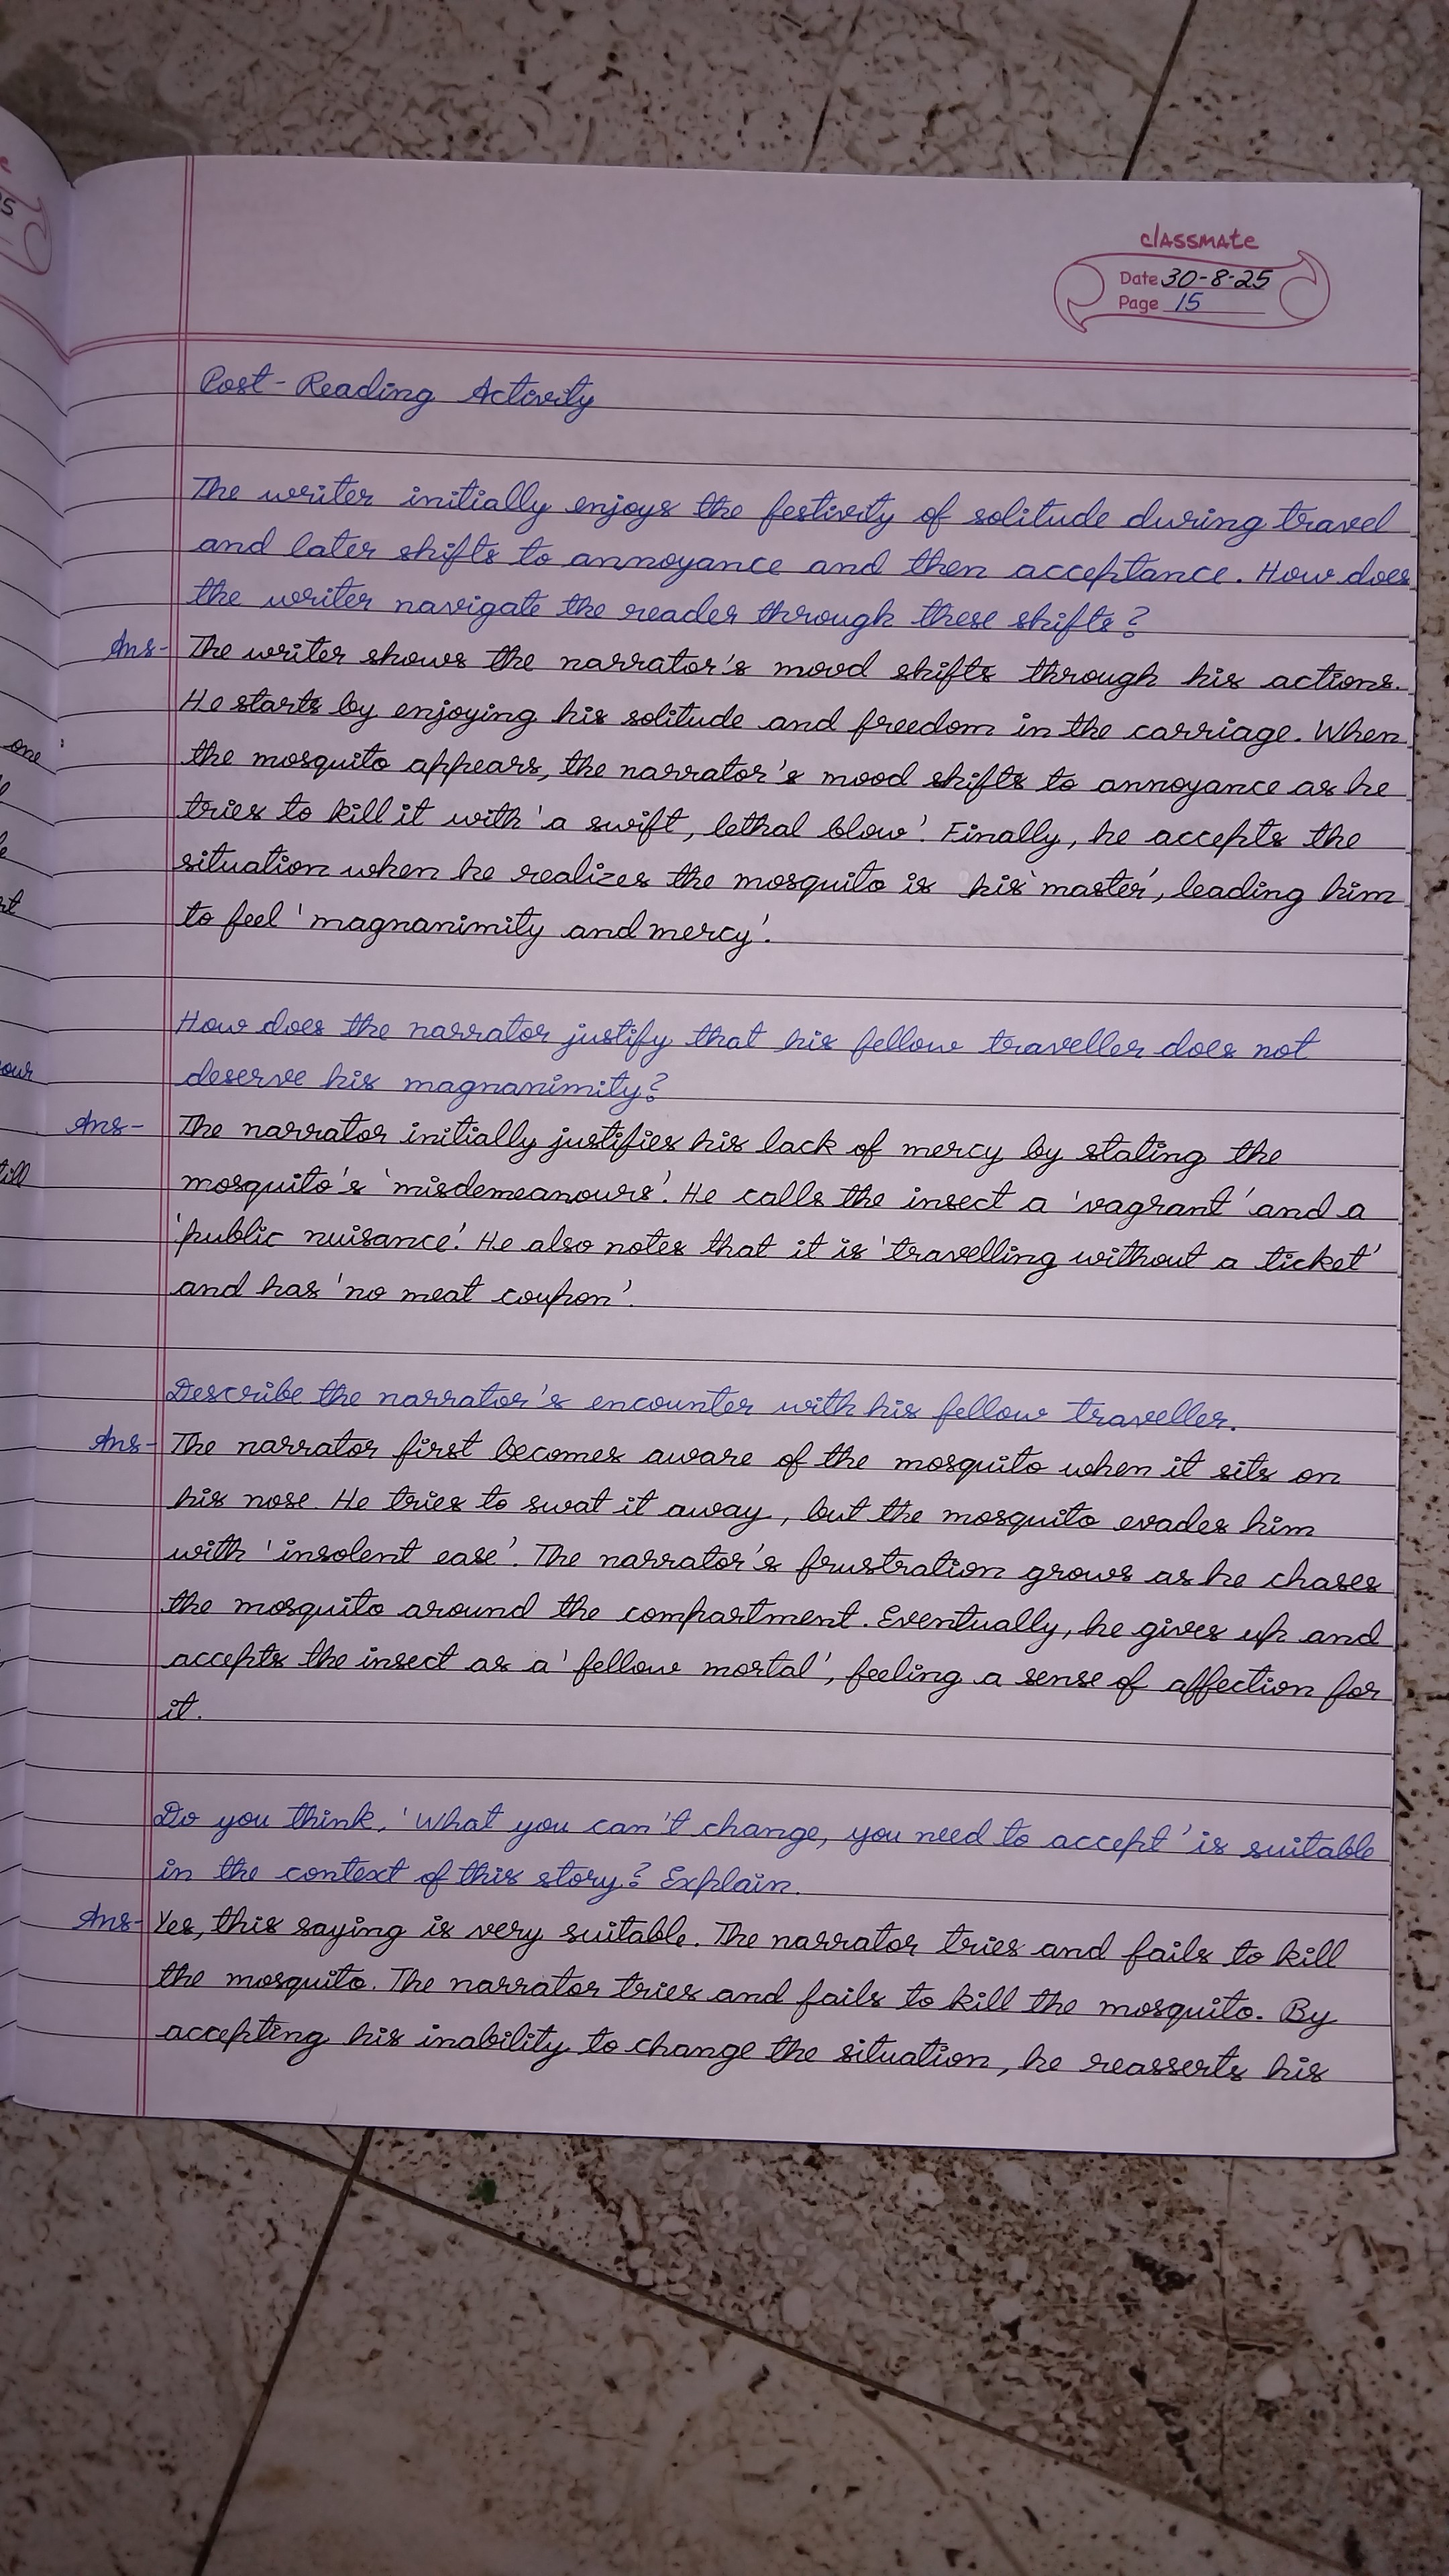 classmate
Date 30-8-25
Page 15
Post-Reading Activity
The writer initially enjoys the festivity of solitude during travel
and later shifts to annoyance and then acceptance. How does
the writer navigate the reader through these shifts?
Ans- The writer shows the narrator's mood shifts through his actions.
He starts by enjoying his solitude and freedom in the carriage. When
the mosquito appears, the narrator's mood shifts to annoyance as he
tries to kill it with 'a swift, lethal blow'. Finally, he accepts the
situation when he realizes the mosquito is his 'master', leading him
to feel 'magnanimity and mercy'.
How does the narrator justify that his fellow traveller does not
deserve his magnanimity?
Ans- The narrator initially justifies his lack of mercy by stating the
mosquito's 'misdemeanours'. He calls the insect a 'vagrant' and a
'public nuisance'. He also notes that it is 'travelling without a ticket'
and has 'no meat coupon'.
Describe the narrator's encounter with his fellow traveller.
Ans- The narrator first becomes aware of the mosquito when it sits on
his nose. He tries to swat it away, but the mosquito evades him
with 'insolent ease'. The narrator's frustration grows as he chases
the mosquito around the compartment. Eventually, he gives up and
accepts the insect as a 'fellow mortal', feeling a sense of affection for
it.
Do you think, 'What you can't change, you need to accept' is suitable
in the context of this story? Explain.
Ans- Yes, this saying is very suitable. The narrator tries and fails to kill
the mosquito. The narrator tries and fails to kill the mosquito. By
accepting his inability to change the situation, he reasserts his
one
our